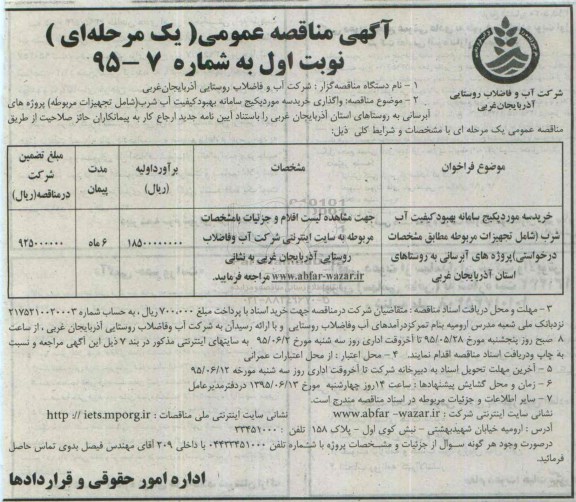 آگهی مناقصه عمومی( یک مرحله‌ای )
نوبت اول به شماره ۷ -۹۵
شرکت آب و فاضلاب روستایی
آذربایجان‌غربی
۱ - نام دستگاه مناقصه‌گزار : شرکت آب و فاضلاب روستایی آذربایجان‌غربی
۲ - موضوع مناقصه: واگذاری خریدسه موردپکیج سامانه بهبودکیفیت آب شرب(شامل تجهیزات مربوطه) پروژه های
آبرسانی به روستاهای استان آذربایجان غربی را باستناد آیین نامه جدید ارجاع کار به پیمانکاران حائز صلاحیت از طریق
مناقصه عمومی یک مرحله ای با مشخصات و شرایط کلی ذیل:
موضوع فراخوان
مشخصات
برآورداولیه (ریال)
مدت پیمان
مبلغ تضمین شرکت درمناقصه(ریال)
خریدسه موردپکیج سامانه بهبودکیفیت آب
شرب (شامل تجهیزات مربوطه مطابق مشخصات
درخواستی)پروژه های آبرسانی به روستاهای
استان آذربایجان غربی
جهت مشاهده لیست اقلام و جزئیات بامشخصات
مربوطه به سایت اینترنتی شرکت آب وفاضلاب
روستایی آذربایجان غربی به نشانی
www.abfar-wazar.ir مراجعه فرمایید.
۱۸۵۰۰۰۰۰۰۰۰
۶ ماه
۹۲۵۰۰۰۰۰۰
۳ - مهلت و محل دریافت اسناد مناقصه : متقاضیان شرکت درمناقصه جهت خرید اسناد با پرداخت مبلغ ۷۰۰,۰۰۰ ریال، به حساب شماره ۲۱۷۵۲۱۰۰۲۰۰۰۳
نزدبانک ملی شعبه مدرس ارومیه بنام تمرکزدرآمدهای آب وفاضلاب روستایی و با ارائه رسیدآن به شرکت آب وفاضلاب روستایی آذربایجان غربی ، از ساعت
۸ صبح روز پنجشنبه مورخ ۹۵/۰۵/۲۸ تا آخروقت اداری روز سه شنبه مورخ ۹۵/۰۶/۲ به سایتهای اینترنتی مذکور در بند ۷ ذیل این آگهی مراجعه و نسبت
به چاپ ودریافت اسناد مناقصه اقدام نمایند. ۴ - محل اعتبار : از محل اعتبارات عمرانی
۵ - آخرین مهلت تحویل اسناد به دبیرخانه شرکت تا آخروقت اداری روز سه شنبه مورخه ۹۵/۰۶/۱۲
۶ - زمان و محل گشایش پیشنهادها : ساعت ۱۴روز چهارشنبه مورخ ۱۳۹۵/۰۶/۱۳ دردفترمدیرعامل
۷ - سایر اطلاعات و جزئیات مربوطه در اسناد مناقصه مندرج است.
نشانی سایت اینترنتی شرکت : www.abfar -wazar.ir نشانی سایت اینترنتی ملی مناقصات : http :// iets.mporg.ir
آدرس : ارومیه خیابان شهیدبهشتی - نبش کوی اول - پلاک ۱۵۸ تلفن : ۳۳۴۵۱۰۰۰
درصورت وجود هر گونه سوال از جزئیات و مشخصات پروژه با شماره تلفن ۰۴۴۳۳۴۵۱۰۰۰ با داخلی ۳۰۹ آقای مهندس فیصل بدوی تماس حاصل
فرمائید.
اداره امور حقوقی و قراردادها